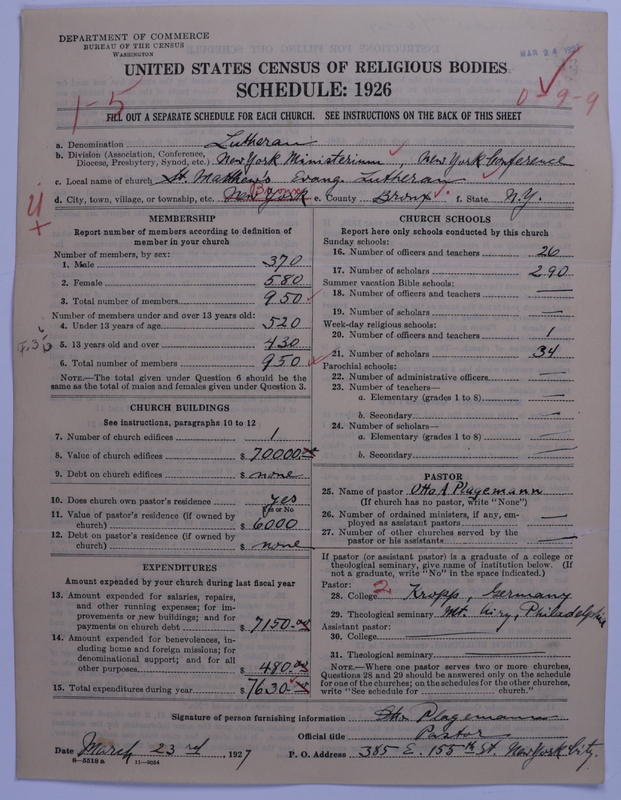 DEPARTMENT OF COMMERCE
BUREAU OF THE CENSUS
WASHINGTON
MAR 24 1927
UNITED STATES CENSUS OF RELIGIOUS BODIES
SCHEDULE: 1926
1-5
0-9-9
FILL OUT A SEPARATE SCHEDULE FOR EACH CHURCH. SEE INSTRUCTIONS ON THE BACK OF THIS SHEET
a. Denomination Lutheran
b. Division (Association, Conference, Diocese, Presbytery, Synod, etc.) New York Ministerium, New York Conference
c. Local name of church St. Matthew's Evang. Lutheran
d. City, town, village, or township, etc. New York Bronx e. County Bronx f. State N.Y.
MEMBERSHIP
Report number of members according to definition of
member in your church
Number of members, by sex:
1. Male 370
2. Female 580
3. Total number of members 950
Number of members under and over 13 years old:
4. Under 13 years of age 520
5. 13 years old and over 430
6. Total number of members 950
NOTE.—The total given under Question 6 should be the
same as the total of males and females given under Question 3.
CHURCH BUILDINGS
See instructions, paragraphs 10 to 12
7. Number of church edifices 1
8. Value of church edifices $ 70000.
9. Debt on church edifices $ none
10. Does church own pastor's residence yes
Yes or No
11. Value of pastor's residence (if owned by
church) $ 6000
12. Debt on pastor's residence (if owned by
church) $ none
EXPENDITURES
Amount expended by your church during last fiscal year
13. Amount expended for salaries, repairs,
and other running expenses; for im-
provements or new buildings; and for
payments on church debt $ 7150.
14. Amount expended for benevolences, in-
cluding home and foreign missions; for
denominational support; and for all
other purposes $ 480.
15. Total expenditures during year $ 7630.
CHURCH SCHOOLS
Report here only schools conducted by this church
Sunday schools:
16. Number of officers and teachers 26
17. Number of scholars 290
Summer vacation Bible schools:
18. Number of officers and teachers —
19. Number of scholars —
Week-day religious schools:
20. Number of officers and teachers 1
21. Number of scholars 34
Parochial schools:
22. Number of administrative officers —
23. Number of teachers—
a. Elementary (grades 1 to 8) —
b. Secondary —
24. Number of scholars—
a. Elementary (grades 1 to 8) —
b. Secondary —
PASTOR
25. Name of pastor Otto A Plagemann
(If church has no pastor, write "None")
26. Number of ordained ministers, if any, em-
ployed as assistant pastors —
27. Number of other churches served by the
pastor or his assistants —
If pastor (or assistant pastor) is a graduate of a college or
theological seminary, give name of institution below. (If
not a graduate, write "No" in the space indicated.)
Pastor:
28. College 2 Kropp, Germany
29. Theological seminary Mt. Airy, Philadelphia
Assistant pastor:
30. College —
31. Theological seminary —
NOTE.—Where one pastor serves two or more churches,
Questions 28 and 29 should be answered only on the schedule
for one of the churches; on the schedules for the other churches,
write "See schedule for church."
Signature of person furnishing information Plagemann
Official title Pastor
Date March 23rd, 1927 P. O. Address 385 E. 155th St. New York City.
8—5518 a 11—9054